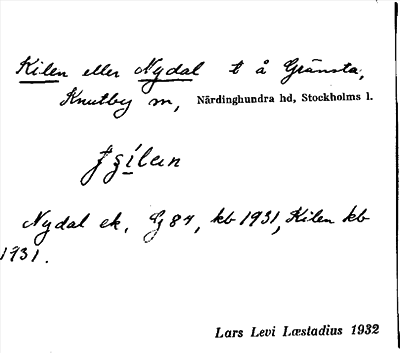 Kilen eller Nydal t å Gränsta,
Knutby sn, Närdinghundra hd, Stockholms l.
Nydal ek. G 84, kb 1931, Kilen kb
1931.
Lars Levi Læstadius 1932